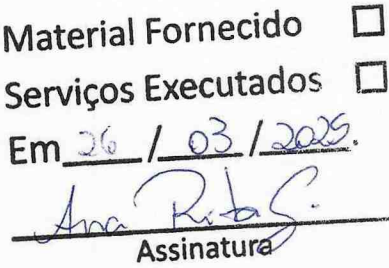 Material Fornecido ☐
Serviços Executados ☐
Em 26 / 03 / 2025.
Ana Rita S.
Assinatura